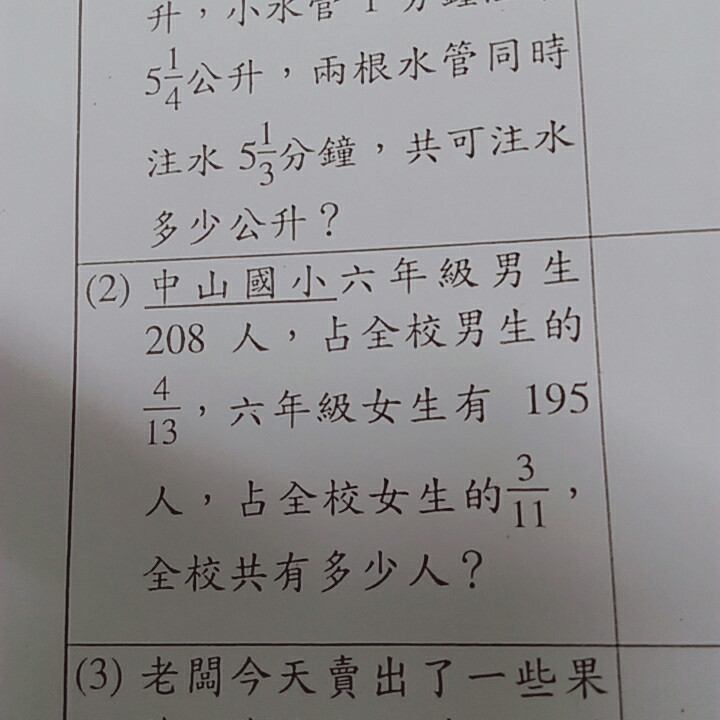 升，小水管 1 分鐘注水
5 1/4 公升，兩根水管同時
注水 5 1/3 分鐘，共可注水
多少公升？
(2) 中山國小六年級男生
208 人，占全校男生的
4/13，六年級女生有 195
人，占全校女生的 3/11，
全校共有多少人？
(3) 老闆今天賣出了一些果